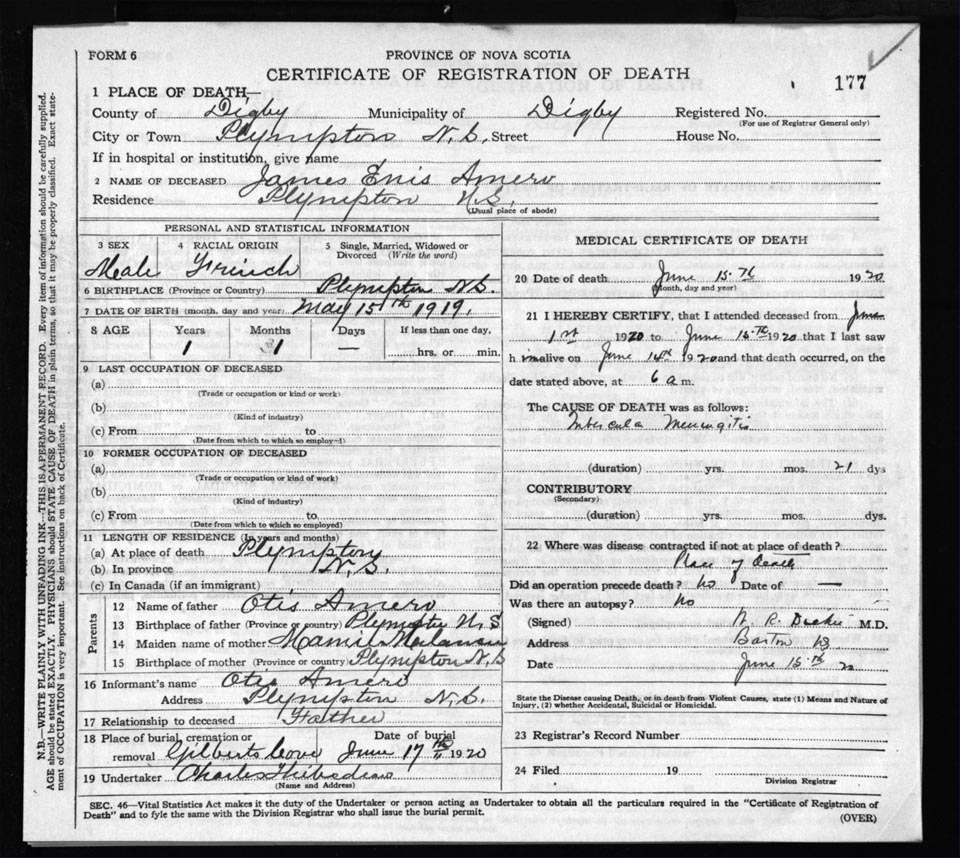 FORM 6
PROVINCE OF NOVA SCOTIA
CERTIFICATE OF REGISTRATION OF DEATH
177
1 PLACE OF DEATH—
County of Digby Municipality of Digby Registered No.
(For use of Registrar General only)
City or Town Plympton N.S. Street House No.
If in hospital or institution, give name
2 NAME OF DECEASED James Enis Amero
Residence Plympton N.S.
(Usual place of abode)
PERSONAL AND STATISTICAL INFORMATION
3 SEX 4 RACIAL ORIGIN 5 Single, Married, Widowed or Divorced (Write the word)
Male French
6 BIRTHPLACE (Province or Country) Plympton N.S.
7 DATE OF BIRTH (month, day and year) May 15th 1919.
8 AGE Years Months Days If less than one day,
1 1 — hrs, or min.
9 LAST OCCUPATION OF DECEASED
(a)
(Trade or occupation or kind or work)
(b)
(Kind of industry)
(c) From to
(Date from which to which so employed)
10 FORMER OCCUPATION OF DECEASED
(a)
(Trade or occupation or kind of work)
(b)
(Kind of industry)
(c) From to
(Date from which to which so employed)
11 LENGTH OF RESIDENCE (In years and months)
(a) At place of death Plympton
(b) In province N.S.
(c) In Canada (if an immigrant)
Parents
12 Name of father Otis Amero
13 Birthplace of father (Province or country) N.S
14 Maiden name of mother Mamie Melanson
15 Birthplace of mother (Province or country) Plympton N.S
16 Informant's name Otis Amero
Address Plympton N.S.
17 Relationship to deceased Father
18 Place of burial, cremation or removal Gilberts Cove Date of burial June 17th 1920
19 Undertaker Charles
(Name and Address)
MEDICAL CERTIFICATE OF DEATH
20 Date of death June 15th 1920
(Month, day and year)
21 I HEREBY CERTIFY, that I attended deceased from June
1st 1920 to June 15th 1920 that I last saw
h im alive on June 14th 1920 and that death occurred, on the
date stated above, at 6 a m.
The CAUSE OF DEATH was as follows:
Tubercula Meningitis
(duration) yrs. mos. 21 dys
CONTRIBUTORY
(Secondary)
(duration) yrs. mos. dys.
22 Where was disease contracted if not at place of death?
Place of death
Did an operation precede death? No Date of —
Was there an autopsy? No
(Signed) M.D.
Address Barton
Date June 15th 20
State the Disease causing Death, or in death from Violent Causes, state (1) Means and Nature of
Injury, (2) whether Accidental, Suicidal or Homicidal.
23 Registrar's Record Number
24 Filed 19
Division Registrar
SEC. 46—Vital Statistics Act makes it the duty of the Undertaker or person acting as Undertaker to obtain all the particulars required in the "Certificate of Registration of
Death" and to fyle the same with the Division Registrar who shall issue the burial permit.
(OVER)
N.B.—WRITE PLAINLY WITH UNFADING INK—THIS IS A PERMANENT RECORD. Every item of information should be carefully supplied.
AGE should be stated EXACTLY. PHYSICIANS should STATE CAUSE OF DEATH in plain terms, so that it may be properly classified. Exact state-
ment of OCCUPATION is very important. See instructions on back of Certificate.